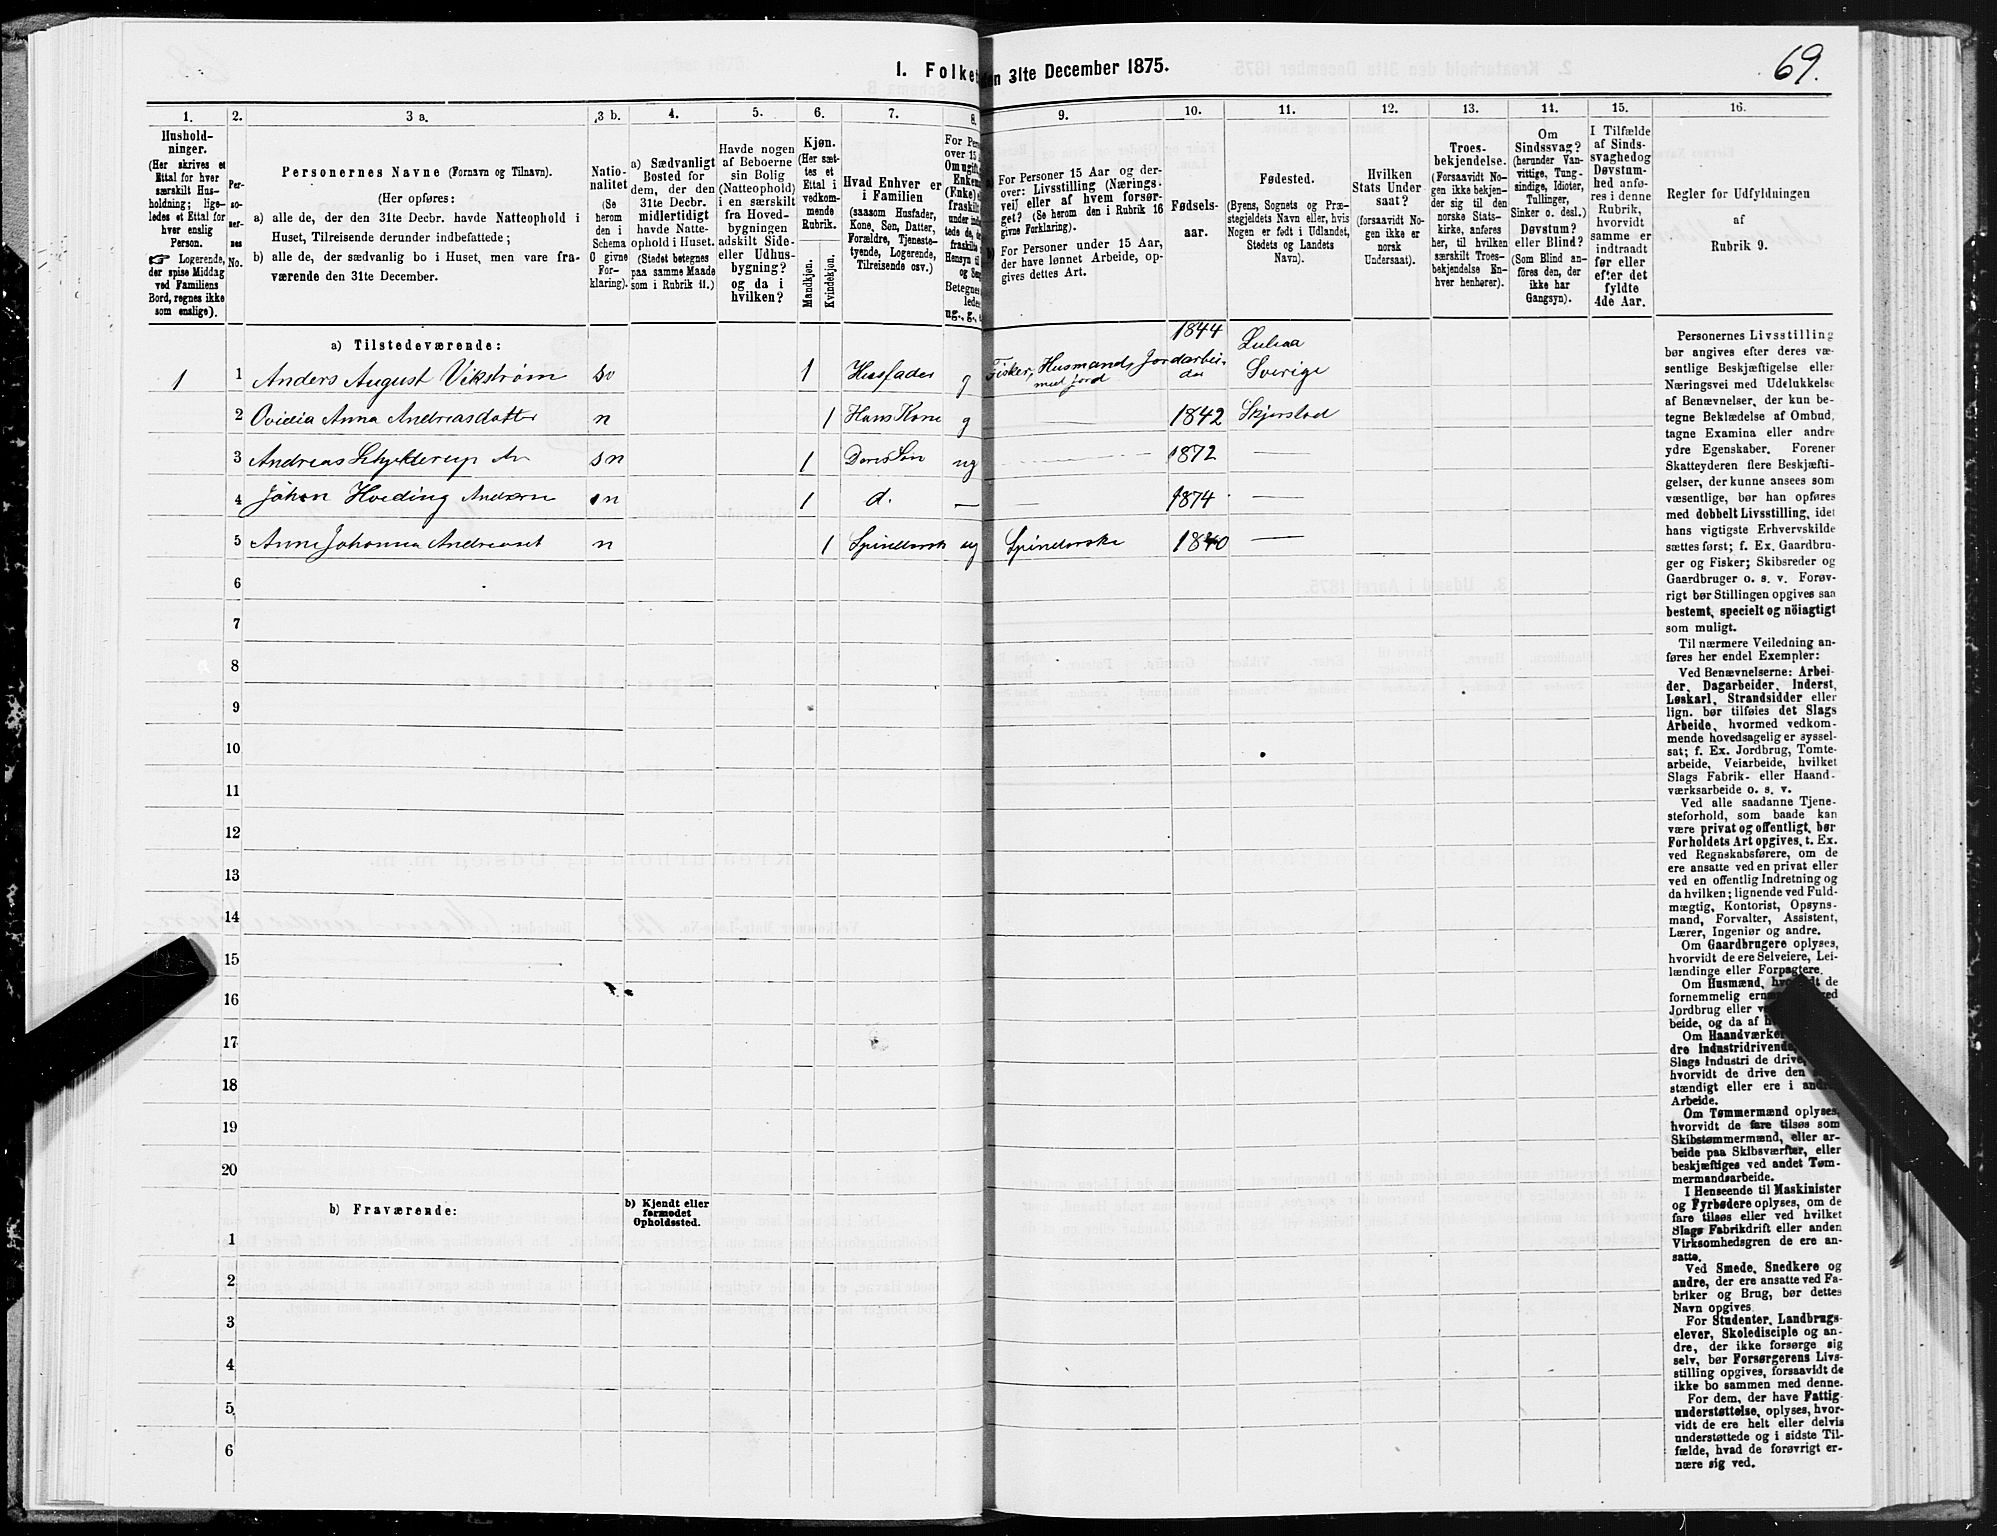 69.
1. Folket
den 31te December 1875.
1. 2. 3 a. 3 b. 4. 5. 6. 7. 8. 9. 10. 11. 12. 13. 14. 15. 16.
Hushold-
ninger.
(Her skrives et
Ettal for hver
særskilt Hus-
holdning; lige-
ledes et Ettal for
hver enslig
Person.
☞ Logerende,
der spise Middag
ved Familiens
Bord, regnes ikke
som enslige).
Per-
so-
ner-
nes
No.
Personernes Navne (Fornavn og Tilnavn).
(Her opføres:
a) alle de, der den 31te Decbr. havde Natteophold i
Huset, Tilreisende derunder indbefattede;
b) alle de, der sædvanlig bo i Huset, men vare fra-
værende den 31te December.
Natio-
nalitet
(Se
herom
den i
Schema
C givne
For-
klaring).
a) Sædvanligt
Bosted for
dem, der den
31te Decbr.
midlertidigt
havde Natte-
ophold i Huset.
(Stedet betegnes
paa samme Maade
som i Rubrik 11.)
Havde nogen
af Beboerne
sin Bolig
(Natteophold)
i en særskilt
fra Hoved-
bygningen
adskilt Side-
eller Udhus-
bygning?
og da i
hvilken?
Kjøn.
(Her sæt-
tes et
Ettal i
vedkom-
mende
Rubrik.
Mandkjøn.
Kvindekjøn.
Hvad Enhver er
i Familien
(saasom Husfader,
Kone, Søn, Datter,
Forældre, Tjeneste-
tyende, Logerende,
Tilreisende osv.)
For Pers
over 15 A
Om ugift,
Enkem
(Enke) e
fraskilt
under indb
tede de,
fraskilte
Hensyn til
og Sen
Betegnes
ledes
ug., g., e
a) For Personer 15 Aar og der-
over: Livsstilling (Nærings-
vei) eller af hvem forsør-
get? (Se herom den i Rubrik 16
givne Forklaring).
b) For Personer under 15 Aar,
der have lønnet Arbeide, op-
gives dettes Art.
Fødsels-
aar.
Fødested.
(Byens, Sognets og Præ-
stegjeldets Navn eller, hvis
Nogen er født i Udlandet,
Stedets og Landets
Navn).
Hvilken
Stats Under
saat?
(forsaavidt No-
gen ikke er
norsk
Undersaat).
Troes-
bekjendelse.
(Forsaavidt No-
gen ikke bekjen-
der sig til den
norske Stats-
kirke, anføres
her, til hvilken
særskilt Troes-
bekjendelse En-
hver henhører).
Om
Sindssvag?
(herunder Van-
vittige, Tung-
sindige, Idioter,
Tullinger,
Sinker o. desl.)
Døvstum?
eller Blind?
(Som Blind an-
føres den, der
ikke har
Gangsyn).
I Tilfælde
af Sinds-
svaghed og
Døvstum-
hed anfø-
res i denne
Rubrik,
hvorvidt
samme er
indtraadt
før eller
efter det
fyldte
4de Aar.
Regler for Udfyldningen
af
Rubrik 9.
a) Tilstedeværende:
1 1 Anders August Vikstrøm so 1 Husfader g Fisker, Husmand med jord, Jordarbei- 1844 Luleaa Sverige
2 Ovidia Anna Andreasdatter n 1 Hans Kone g 1842 Skjerstad
3 Andreas s n 1 Deres Søn ug 1872 —
4 Johan Hveding Anders n 1 d. — — 1874 —
5 Anne Johanna n 1 ug 1840 —
6
7
8
9
10
11
12
13
14
15
16
17
18
19
20
b) Fraværende:
b) Kjendt eller
formodet
Opholdssted.
1
2
3
4
5
6
Personernes Livsstilling
bør angives efter deres væ-
sentlige Beskjæftigelse eller
Næringsvei med Udelukkelse
af Benævnelser, der kun be-
tegne Beklædelse af Ombud,
tagne Examina eller andre
ydre Egenskaber. Forener
Skatteyderen flere Beskjæfti-
gelser, der kunne ansees som
væsentlige, bør han opføres
med dobbelt Livsstilling, idet
hans vigtigste Erhvervskilde
sættes først; f. Ex. Gaardbru-
ger og Fisker; Skibsreder og
Gaardbruger o. s. v. Forøv-
rigt bør Stillingen opgives saa
bestemt, specielt og nöiagtigt
som muligt.
Til nærmere Veiledning an-
føres her endel Exempler:
Ved Benævnelserne: Arbei-
der, Dagarbeider, Inderst,
Løskarl, Strandsidder eller
lign. bør tilføies det Slags
Arbeide, hvormed vedkom-
mende hovedsagelig er syssel-
sat; f. Ex. Jordbrug, Tomte-
arbeide, Veiarbeide, hvilket
Slags Fabrik- eller Haand-
værksarbeide o. s. v.
Ved alle saadanne Tjene-
steforhold, som baade kan
være privat og offentligt, bør
Forholdets Art opgives, t. Ex.
ved Regnskabsførere, om de
ere ansatte ved en privat eller
ved en offentlig Indretning og
da hvilken; lignende ved Fuld-
mægtig, Kontorist, Opsyns-
mand, Forvalter, Assistent,
Lærer, Ingeniør og andre.
Om Gaardbrugere oplyses,
hvorvidt de ere Selveiere, Lei-
lændinge eller Forpagtere.
Om Husmænd, de
fornemmelig ved
Jordbrug eller
beide, og da af
Om Haandværkere
dre Industridrivende,
Slags Industri de drive,
hvorvidt de drive den
stændigt eller ere i andres
Arbeide.
Om Tømmermænd oplyses,
hvorvidt de fare tilsøs som
Skibstømmermænd, eller ar-
beide paa Skibsværfter, eller
beskjæftiges ved andet Tøm-
mermandsarbeide.
I Henseende til Maskinister
og Fyrbødere oplyses, om de
fare tilsøs eller ved hvilket
Slags Fabrikdrift eller anden
Virksomhedsgren de ere an-
satte.
Ved Smede, Snedkere og
andre, der ere ansatte ved Fa-
briker og Brug, bør dettes
Navn opgives.
For Studenter, Landbrugs-
elever, Skoledisciple og an-
dre, der ikke forsørge sig
selv, bør Forsørgerens Livs-
stilling opgives, forsaavidt de
ikke bo sammen med denne.
For dem, der have Fattig-
understøttelse, oplyses, hvor-
vidt de ere helt eller delvis
understøttede og i sidste Til-
fælde, hvad de forøvrigt er-
nære sig ved.